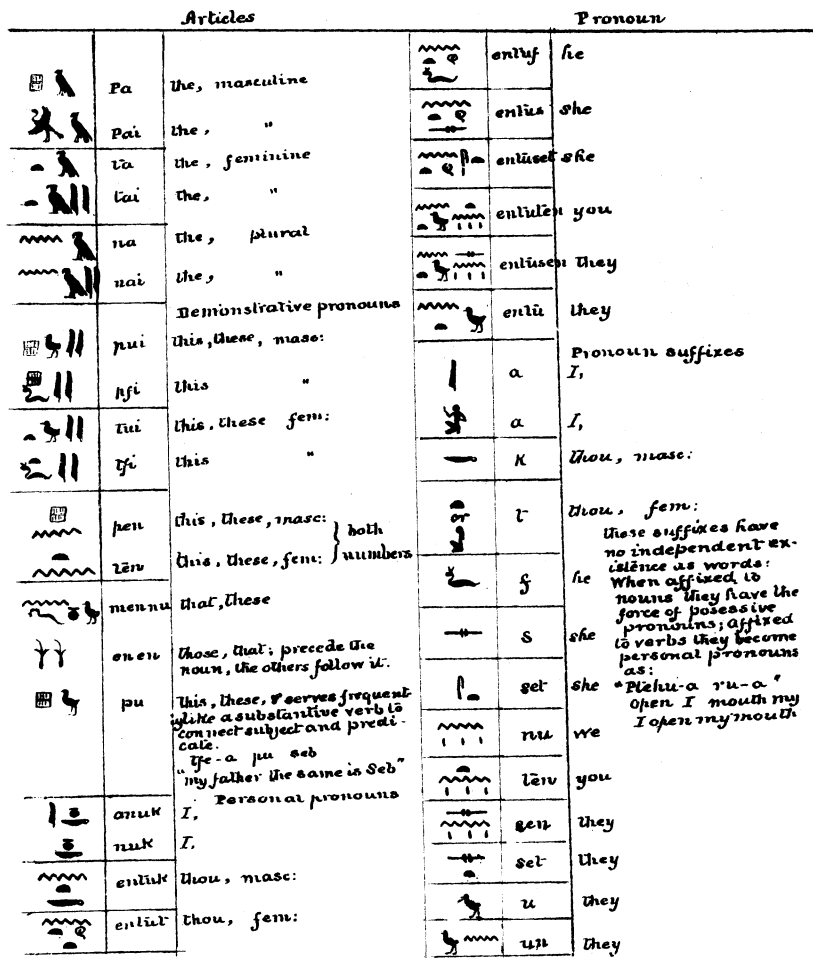 Articles
Pa the, masculine
Pai the, "
ta the, feminine
tai the, "
na the, plural
nai the, "
Demonstrative pronouns
pui this, these, masc:
pfi this "
tui this, these fem:
tfi this "
pen this, these, masc: } both
ten this, these, fem: } numbers
mennu that, these
enen those, that; precede the
noun, the others follow it.
pu this, these, & serves frequent
ly like a substantive verb to
connect subject and predi-
cate.
tfe-a pu seb
"my father the same is Seb"
Personal pronouns
anuk I,
nuk I,
entuk thou, masc:
entut thou, fem:
Pronoun
entuf he
entus she
entuset she
entuten you
entusen they
entu they
Pronoun suffixes
a I,
a I,
K thou, masc:
t thou, fem:
these suffixes have
no independent ex-
istence as words:
f he When affixed to
nouns they have the
force of posessive
s she pronouns; affixed
to verbs they become
personal pronouns
as:
set she "Ptehu-a ru-a"
open I mouth my
I open my mouth
nu we
ten you
sen they
set they
u they
un they